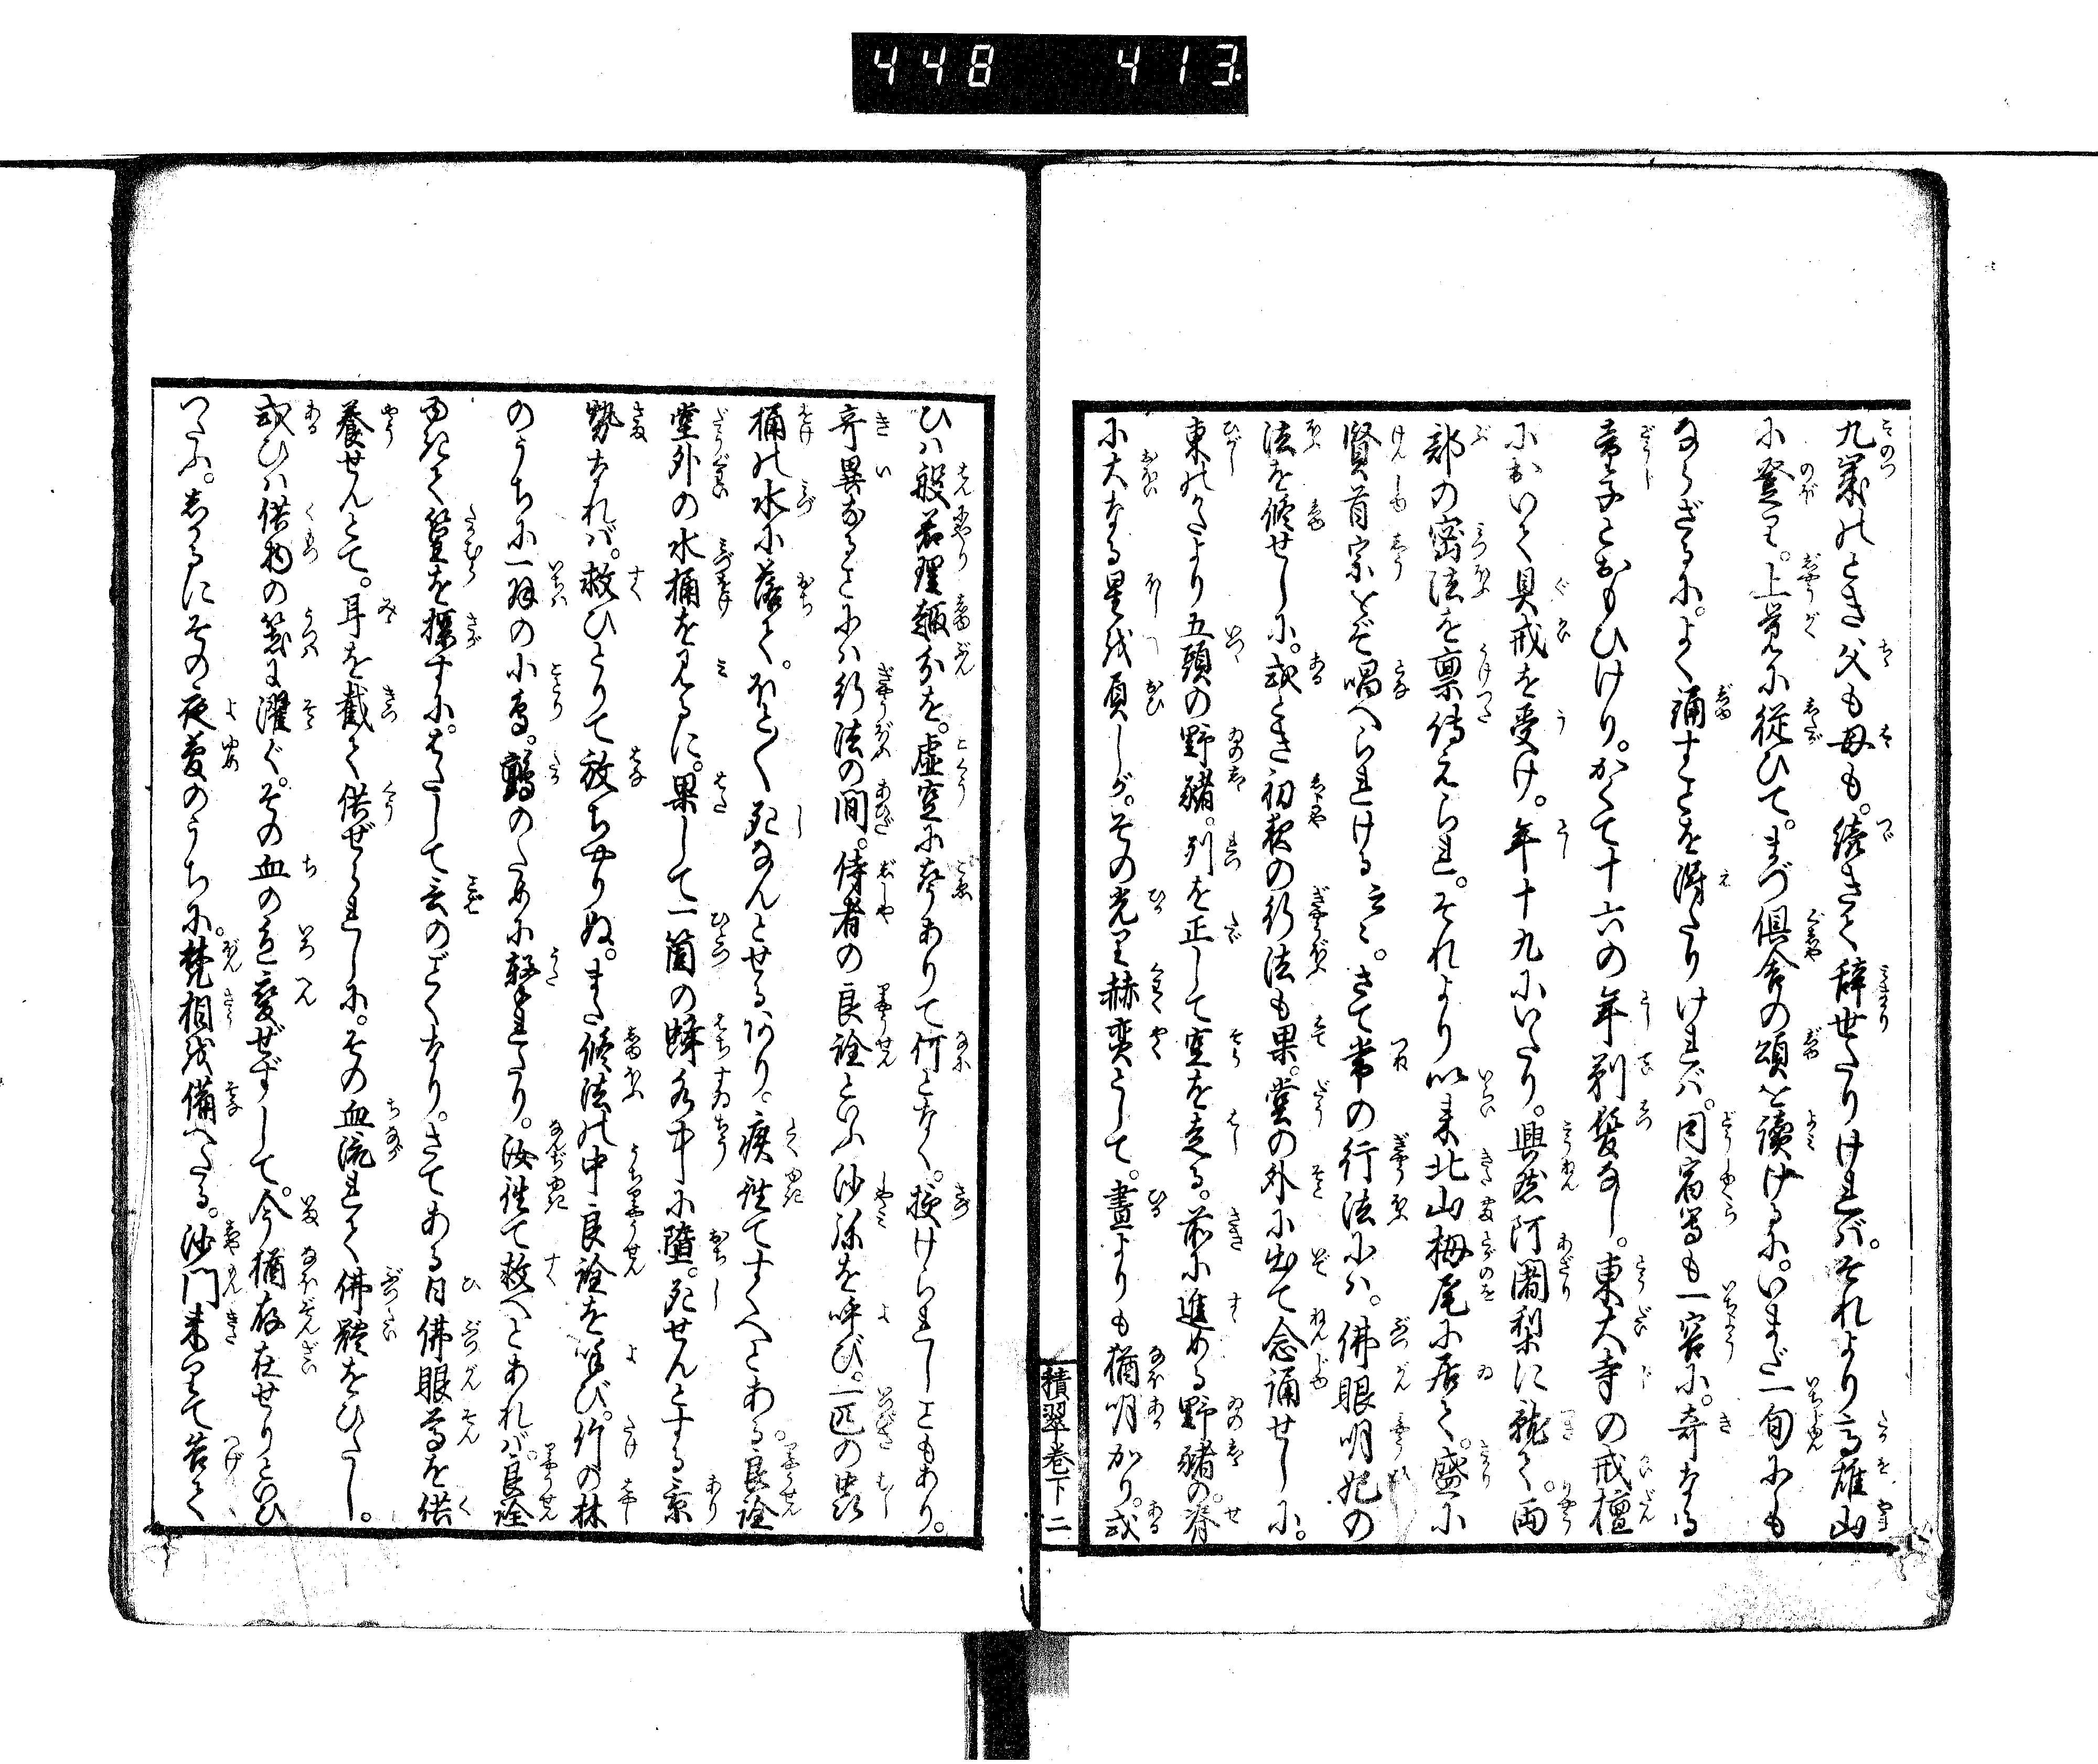 448 413
九歳のとき父も母も。続きて辞世たりければ。それより高雄山
に登り。上覚に従ひて。まづ倶舎の頌を読けるに。いまだ二旬にも
ならざるに。よく誦すことを得たりければ。同宿等も一容に。奇なる
童子とおもひけり。かくて十六の年剃髪なし。東大寺の戒檀
において具戒を受け。年十九にいたり。興然阿闍梨に就て。両
部の密法を稟傳えられ。それより以来北山栂尾に居て。盛に
賢首宗をぞ唱へられける云々。さて常の行法には。佛眼明妃の
法を修せしに。或とき初夜の行法も果。堂の外に出て念誦せしに。
東のかたより五頭の野猪。列を正して空を走る。前に進める野猪の。脊
に大なる星を負しが。その光り赫奕として。晝よりも猶明かり。或
積翠巻下 二
ひは般若理趣分を。虚空に聲ありて何となく。授けられしこともあり。
奇異なることには行法の間。侍者の良詮といふ沙弥を呼び。一匹の虫
桶の水に落て。ほとく死なんとせるあり。疾往てすくへとある。良詮
堂外の水桶を見るに。果して一箇の蜂水中に墮。死せんとする景
勢なれば。救ひとりて放ちやりぬ。また修法の中良詮を呼び。竹の林
のうちに一羽の小鳥。鷂のために撃れたり。汝往て救へとあれば。良詮
ゆきて篁を探すに。はたして言のごとくなり。さてある日佛眼尊を供
養せんとて。耳を截て供ぜられしに。その血流れて佛軆をひたし。
或ひは供物の器に濯ぐ。その血の色変ぜずして。今猶存在せりといひ
つたふ。しかるにその夜夢のうちに。梵相を備へたる。沙門来りて告て